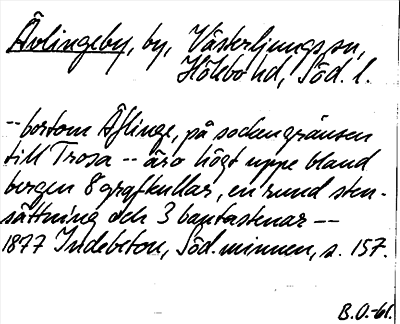 Åvlingeby, by, Västerljungs sn,
Hölebo hd, Söd. l.
-- bortom Åflinge, på sockengränsen
till Trosa -- äro högt uppe bland
bergen 8 grafkullar, en rund sten-
sättning och 3 bautastenar --
1877 Indebetou, Söd. minnen, s. 157.
B.O.-61.